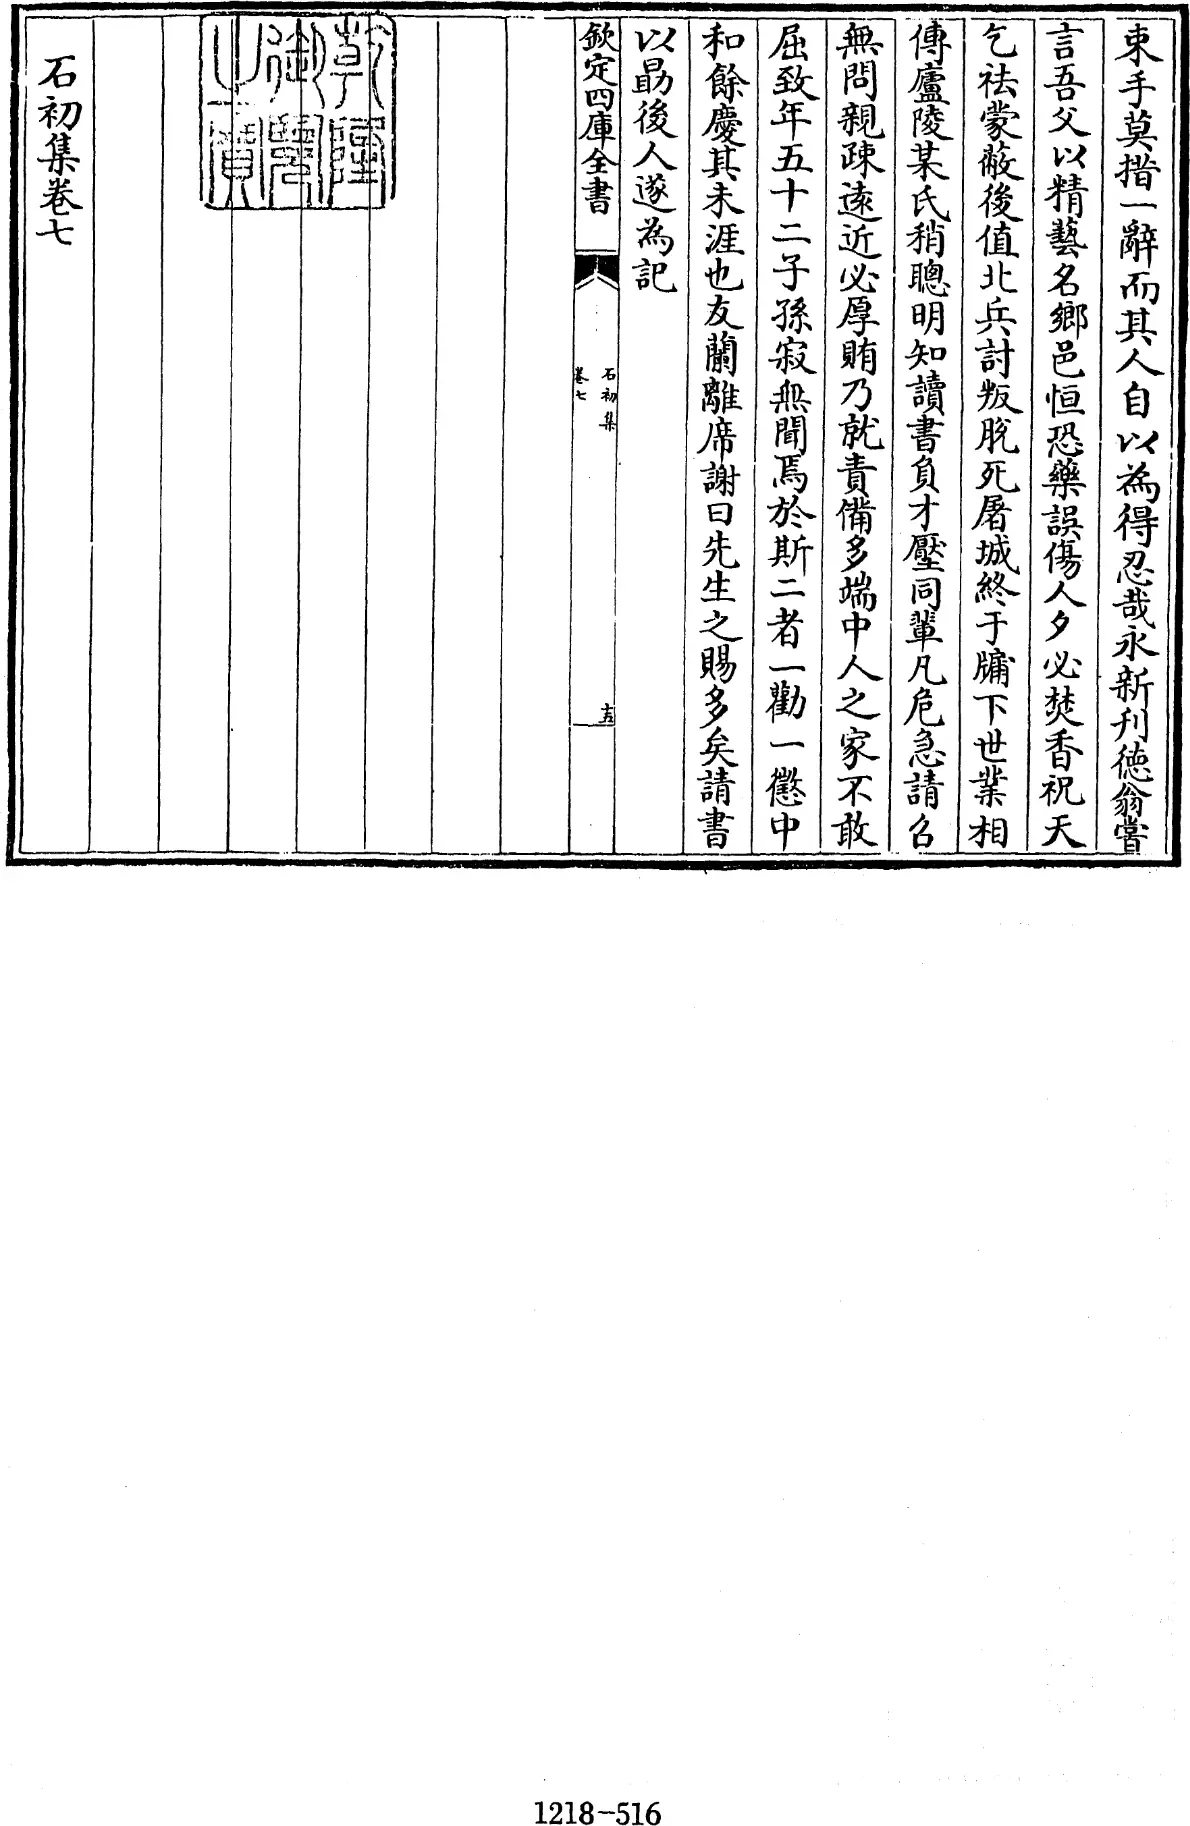 束手莫措一辭而其人自以為得忍哉永新刋德翁嘗
言吾父以精藝名鄉邑恒恐藥誤傷人夕必焚香祝天
乞祛蒙蔽後值北兵討叛脱死屠城終于牖下世業相
傳廬陵某氏稍聰明知讀書負才壓同輩凡危急請召
無問親疎逺近必厚賄乃就責備多端中人之家不敢
屈致年五十二子孫寂無聞焉於斯二者一勸一懲中
和餘慶其未涯也友蘭離席謝曰先生之賜多矣請書
以勗後人遂為記
欽定四庫全書
石初集
卷七
十五
乾隆
御覽
之寶
石初集卷七
1218-516